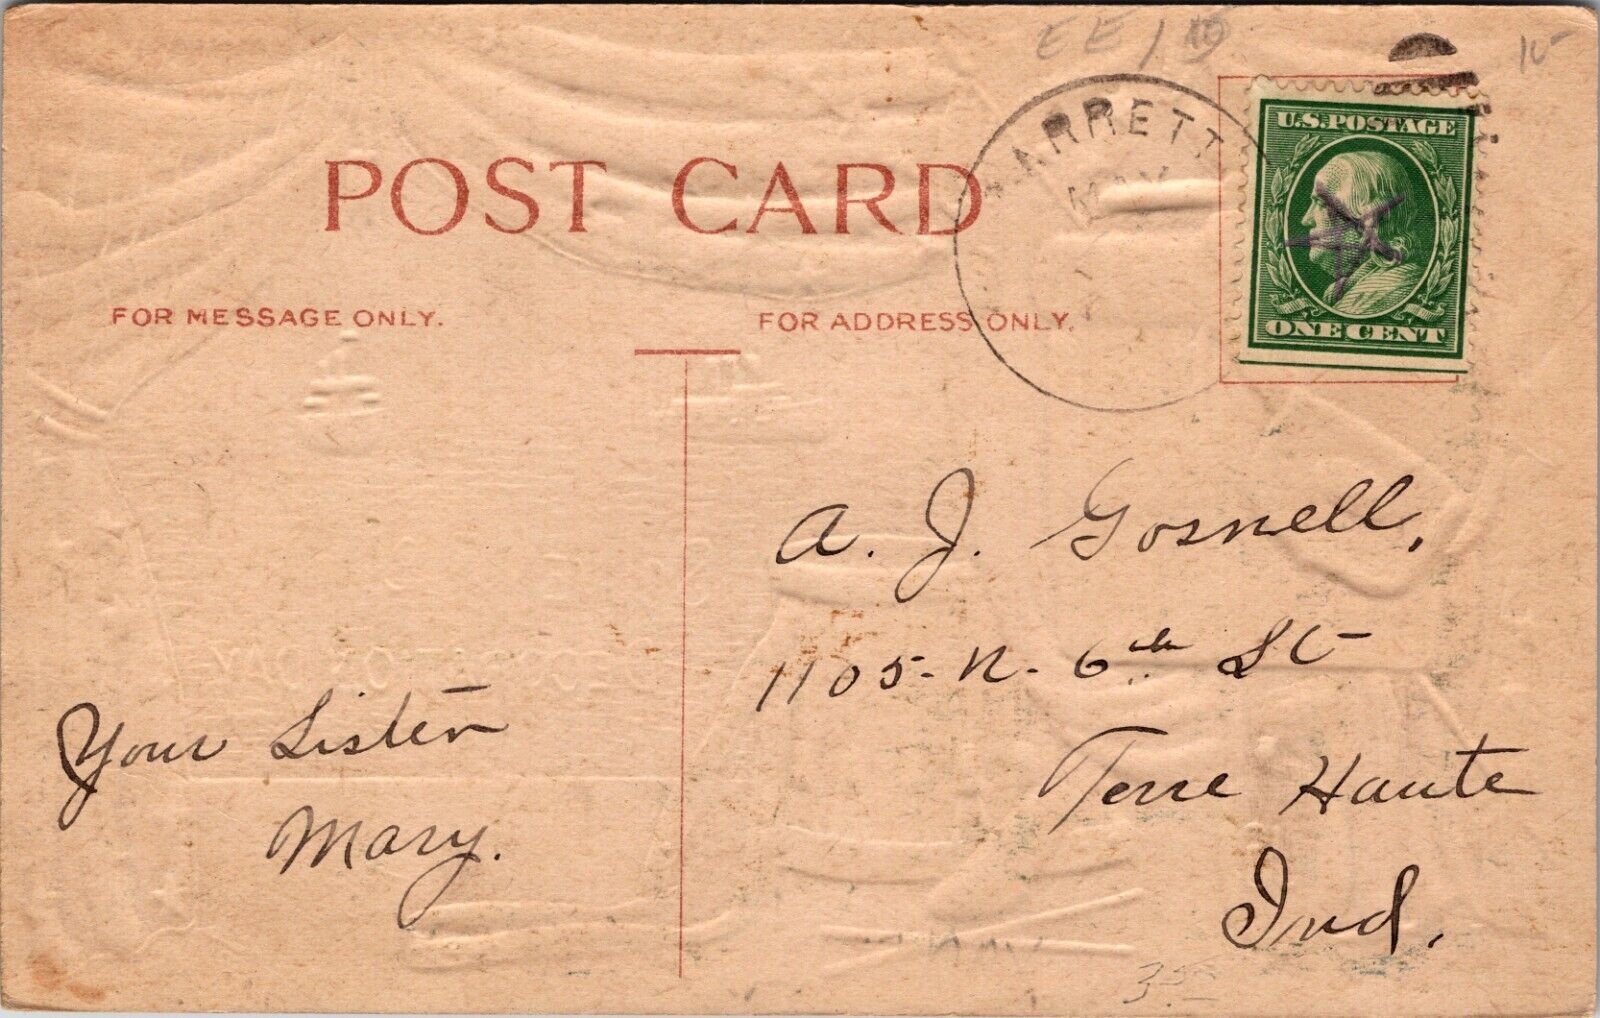 EE/
15
ARRETT
MAY
U.S. POSTAGE
ONE CENT
POST CARD
FOR MESSAGE ONLY.
FOR ADDRESS ONLY.
A. J. Gosnell,
1105-N-6th St-
Terre Haute
Ind.
Your Sister
Mary.